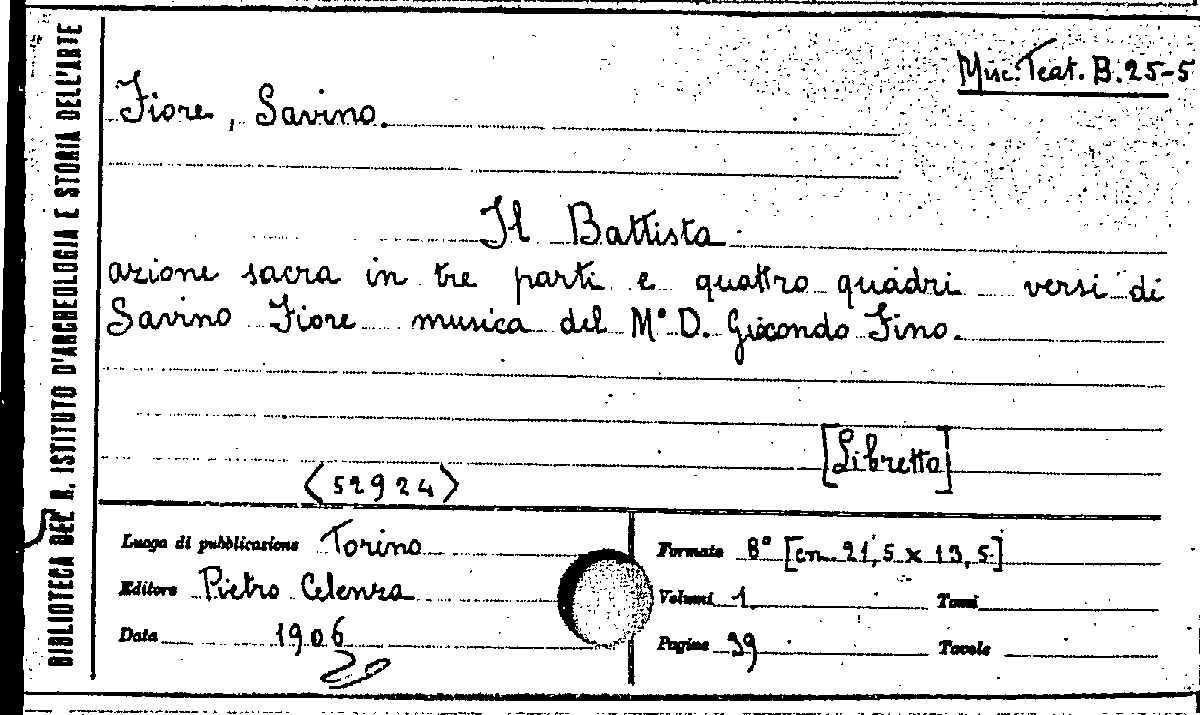 Misc. Teat. B. 25-5
Fiore, Savino.
Il Battista
azione sacra in tre parti e quattro quadri versi di
Savino Fiore musica del M° D. Giocondo Fino.
[Libretto]
<52924>
Luogo di pubblicazione Torino
Editore Pietro Celenza
Data 1906
Formato 8° [cm. 21,5 x 13,5]
Volumi 1. Tomi
Pagine 39 Tavole
BIBLIOTECA DEL R. ISTITUTO D'ARCHEOLOGIA E STORIA DELL'ARTE